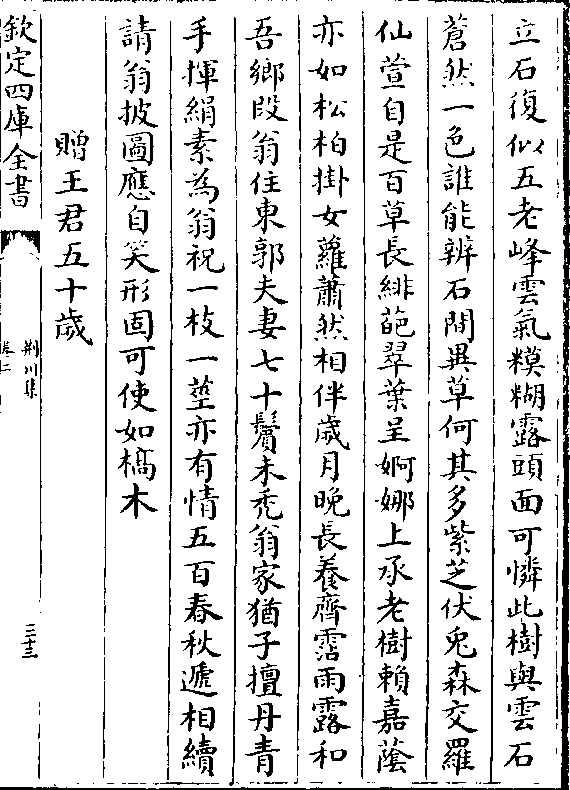 立石復似五老峰雲氣糢糊露頭面可憐此樹與雲石
蒼然一色誰能辨石間異草何其多紫芝伏兎森交羅
仙萱自是百草長緋葩翠葉呈婀娜上承老樹賴嘉蔭
亦如松柏掛女蘿蕭然相伴歲月晚長養齊霑雨露和
吾鄉段翁住東郭夫妻七十鬢未禿翁家猶子擅丹青
手揮絹素為翁祝一枝一莖亦有情五百春秋遞相續
請翁披圖應自笑形固可使如槁木
贈王君五十歲
欽定四庫全書
荆川集
卷二
三十三